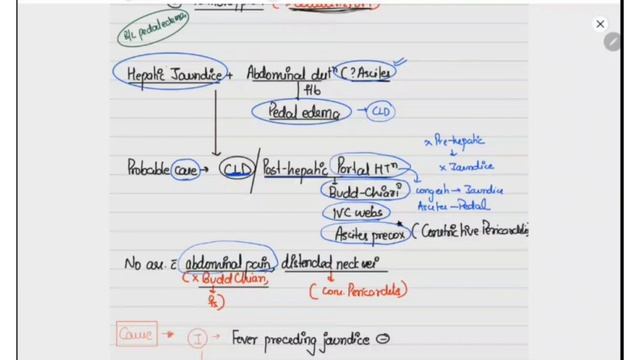 B/L pedal edema
Hepatic Jaundice + Abdominal distn (? Ascites)
f/b
Pedal edema → CLD
x Pre-hepatic
x Jaundice
Probable cause → CLD / Post-hepatic Portal HTn
Budd-Chiari
congestn → Jaundice
IVC webs
Ascites → Pedal
Ascites precox (Constrictive Pericarditis
No a/w abdominal pain, distended neck vei
(x Budd Chiari,
(Con. Pericarditis)
Cause → I → Fever preceding jaundice ⊖